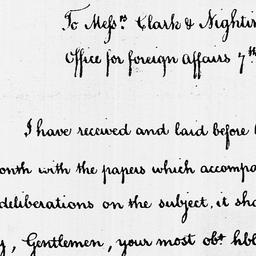 To Mess.rs Clark & Nightin
Office for foreign Affairs 7th
I have received and laid before
onth with the papers which accompa
deliberations on the subject, it sho
y, Gentlemen, your most obt. hble